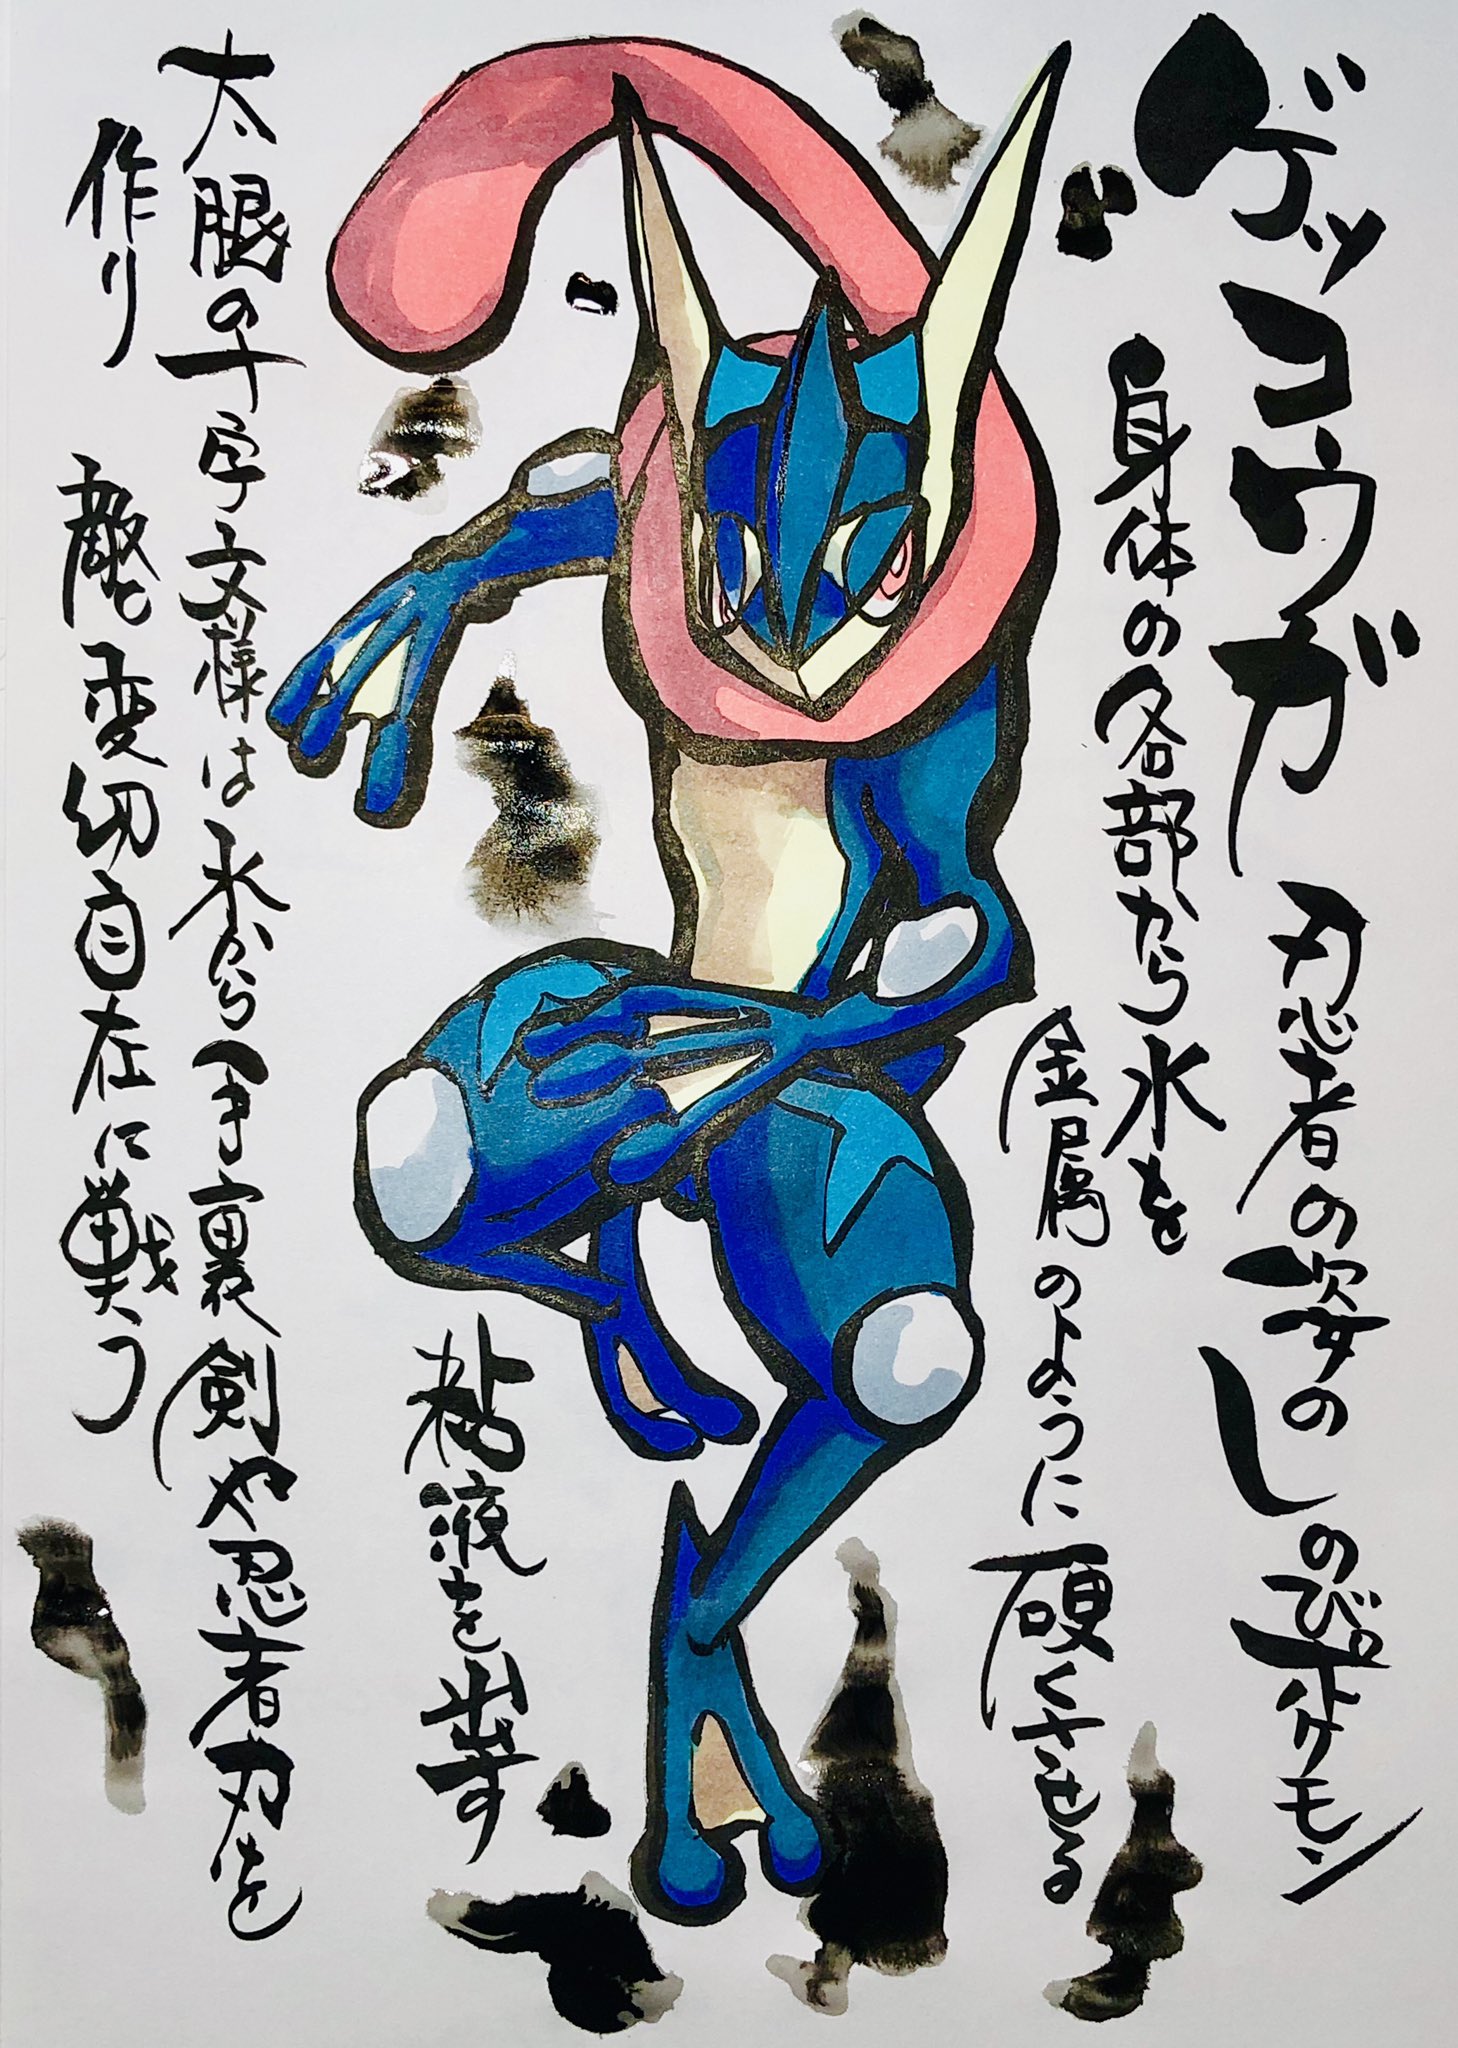 ゲッコウガ 忍者の姿のしのびポケモン
身体の各部から水を
金属のように硬くさせる
粘液を出す
太腿の十字文様は水から手裏剣や忍者刀を
作り 敵と変幻自在に戦う